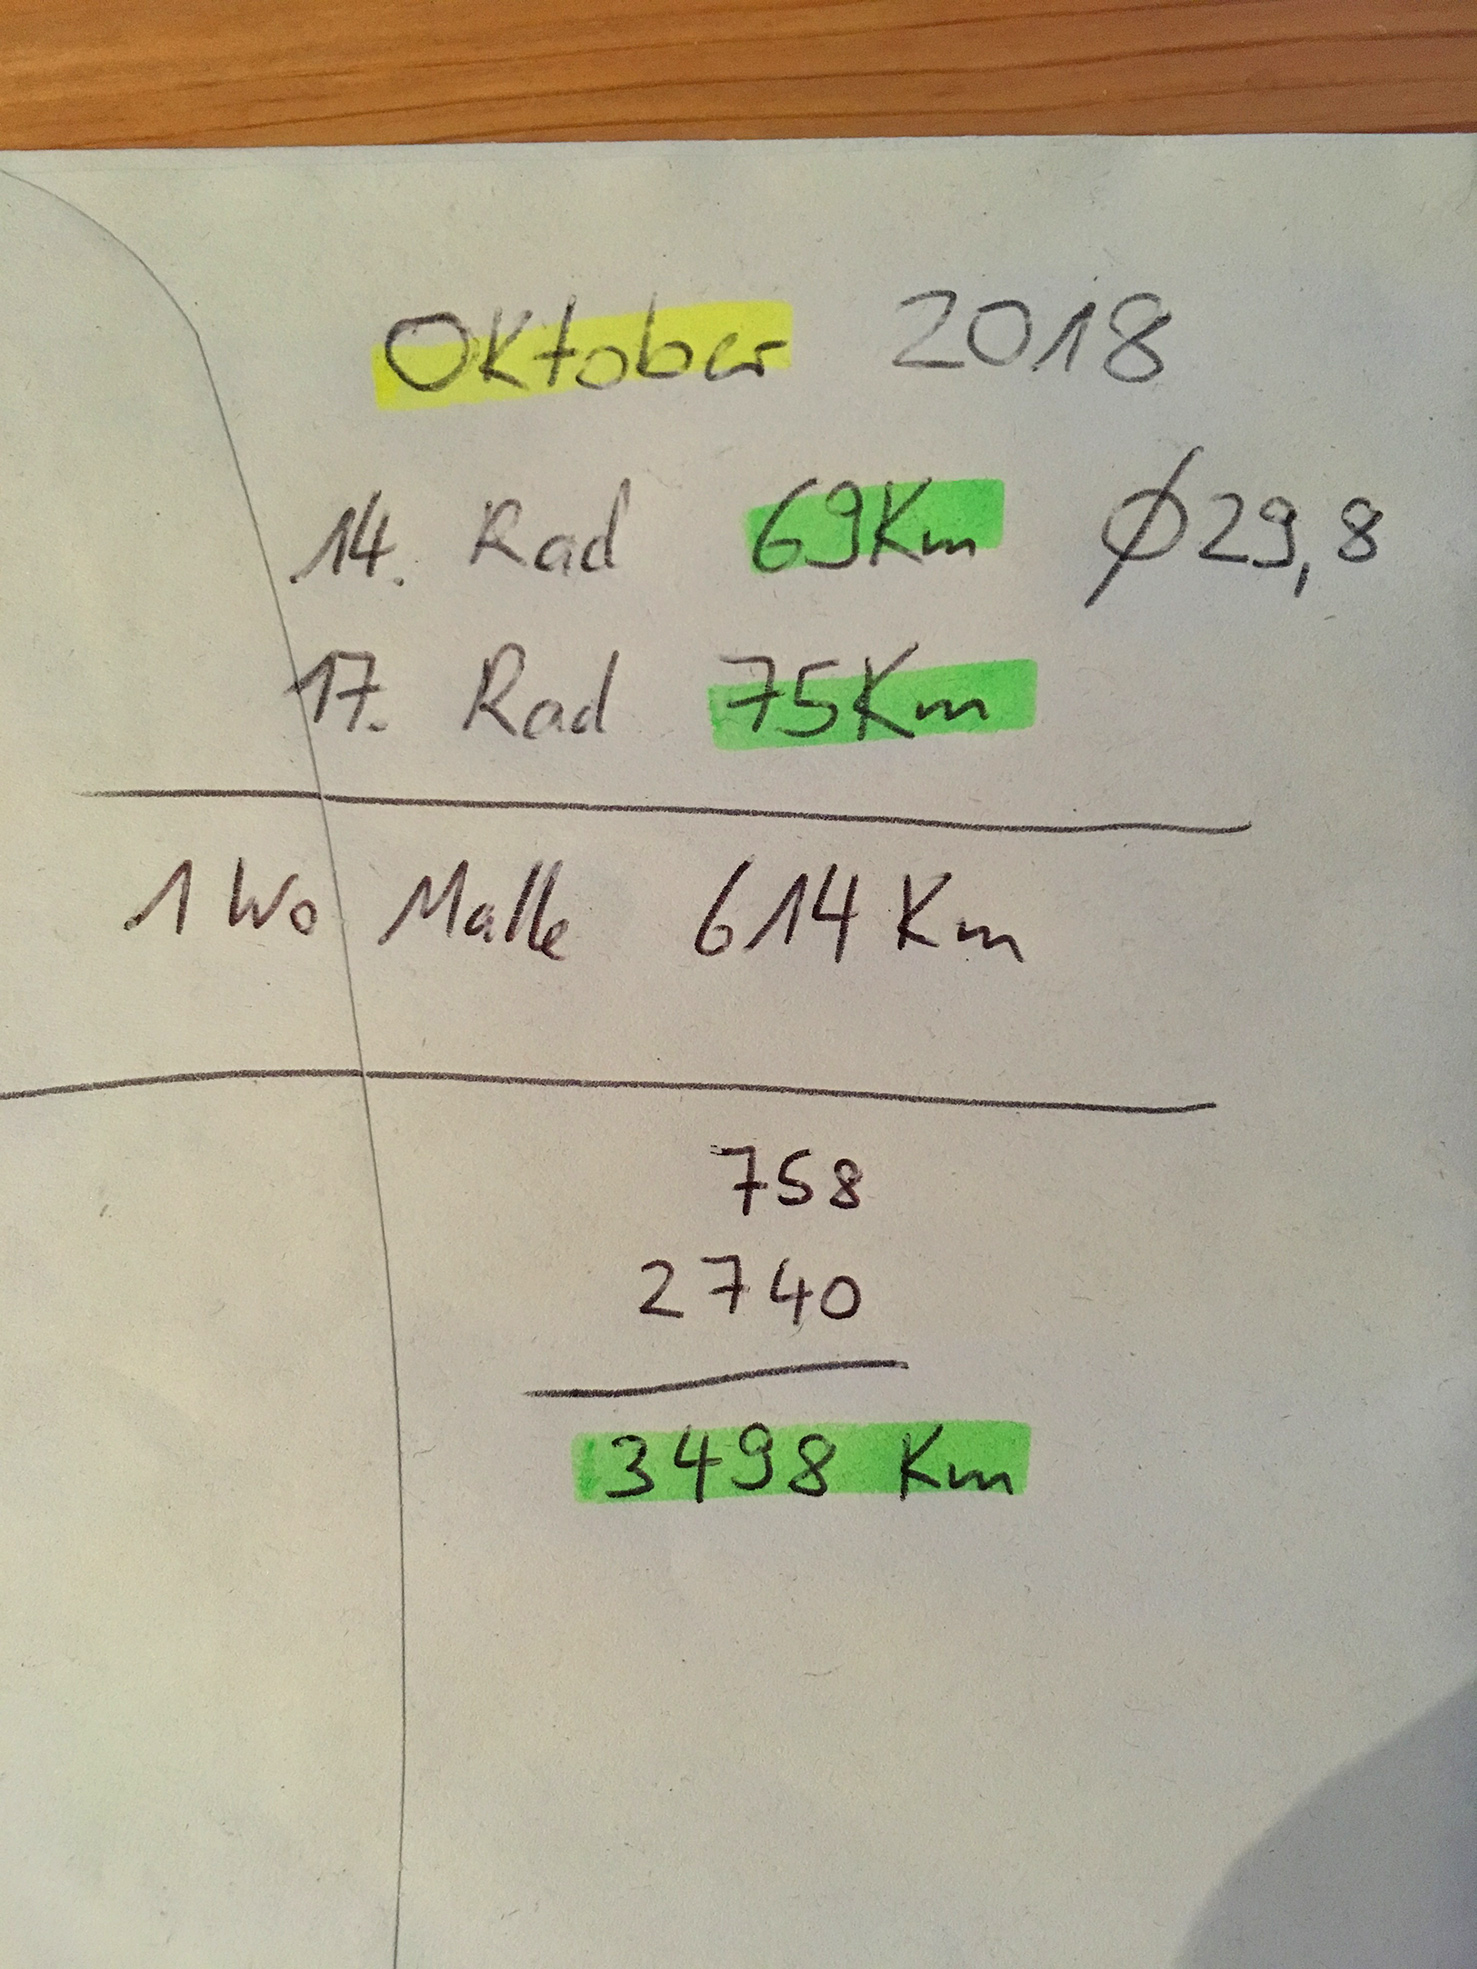 Oktober 2018
14. Rad 69Km Ø29,8
17. Rad 75Km
1 Wo Malle 614 Km
758
2740
3498 Km